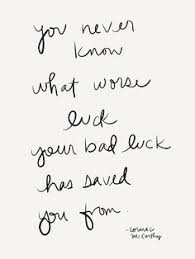 you never
know
what worse
luck
your bad luck
has saved
you from.
- cormac
mccarthy